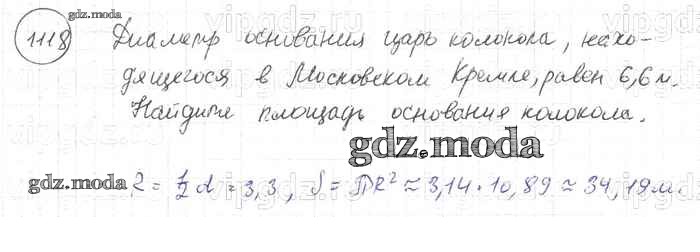 gdz.moda
1118 Диаметр основания царь колокола, нахо-
дящегося в Московском Кремле, равен 6,6 м.
Найдите площадь основания колокола.
gdz.moda
gdz.moda R = 1/2 d = 3,3, S = ПR² ≈ 3,14·10,89 ≈ 34,19 м.